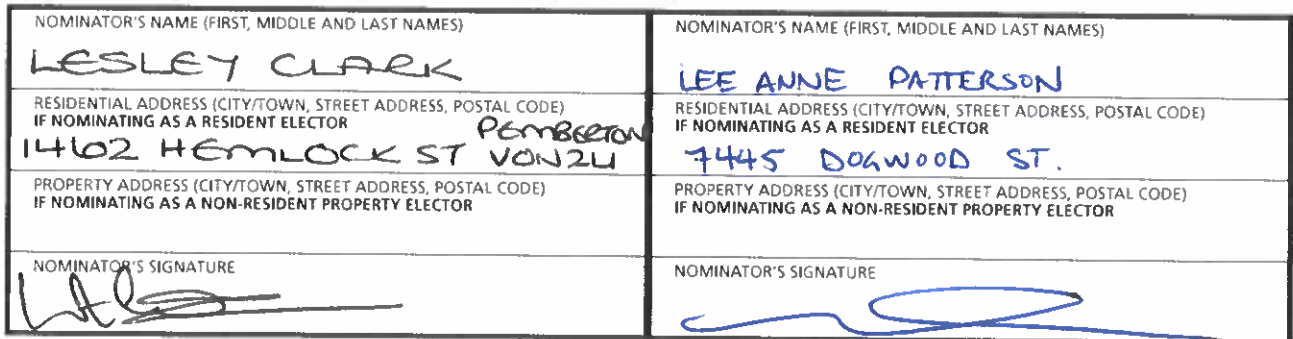 NOMINATOR'S NAME (FIRST, MIDDLE AND LAST NAMES)
LESLEY CLARK
RESIDENTIAL ADDRESS (CITY/TOWN, STREET ADDRESS, POSTAL CODE)
IF NOMINATING AS A RESIDENT ELECTOR
PEMBERTON
1462 HEMLOCK ST V0N2L1
PROPERTY ADDRESS (CITY/TOWN, STREET ADDRESS, POSTAL CODE)
IF NOMINATING AS A NON-RESIDENT PROPERTY ELECTOR
NOMINATOR'S SIGNATURE
NOMINATOR'S NAME (FIRST, MIDDLE AND LAST NAMES)
LEE ANNE PATTERSON
RESIDENTIAL ADDRESS (CITY/TOWN, STREET ADDRESS, POSTAL CODE)
IF NOMINATING AS A RESIDENT ELECTOR
7445 DOGWOOD ST.
PROPERTY ADDRESS (CITY/TOWN, STREET ADDRESS, POSTAL CODE)
IF NOMINATING AS A NON-RESIDENT PROPERTY ELECTOR
NOMINATOR'S SIGNATURE